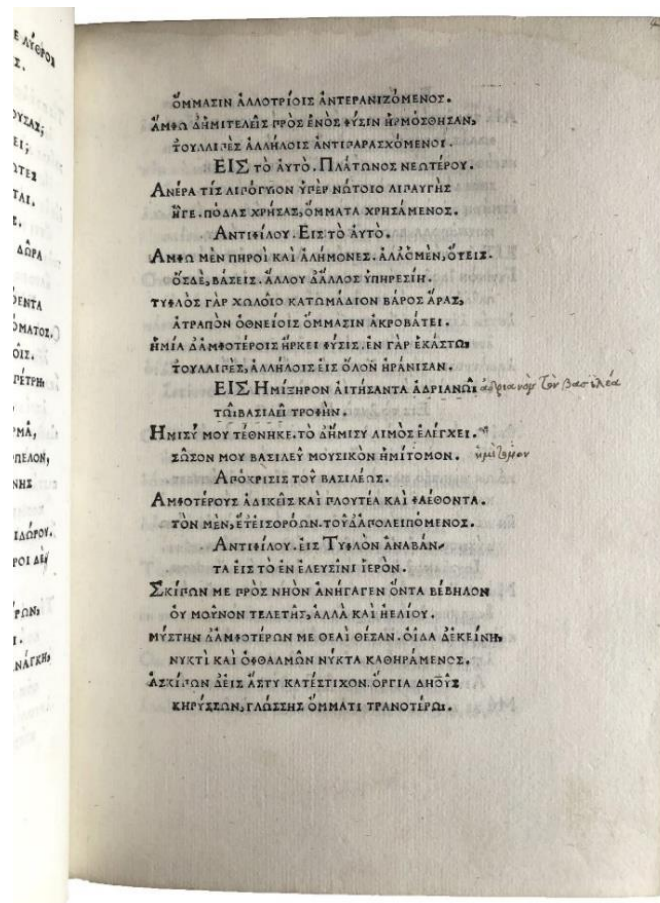 Ε ΛΎΘΡΟΝ
Σ.
ΟΥΣΑΣ;
ΕΙ;
ΩΤΕΣ
ΤΑΙ.
Σ.
ΔΩΡΑ
ΘΕΝΤΑ
ΌΜΑΤΟΣ.
ΌΙΣ.
ΡΈΤΡΗ;
ΡΜᾶ,
ΟΠΕΛΟΝ,
ΝΗΣ
ΙΔΏΡΟΥ.
ΡΟΙ ΔῈ
ΡΩΝ;
Ι.
ΝΆΓΚΗ,
ὌΜΜΑΣΙΝ ἈΛΛΟΤΡΊΟΙΣ ἈΝΤΕΡΑΝΙΖΌΜΕΝΟΣ.
ἌΜΦΩ Δ᾽ΗΜΙΤΕΛΕΙ͂Σ ΠΡῸΣ ἙΝῸΣ ΦΎΣΙΝ ἩΡΜΌΣΘΗΣΑΝ,
ΤΟΥΛΛΙΠῈΣ ἈΛΛΉΛΟΙΣ ἈΝΤΙΠΑΡΑΣΧΌΜΕΝΟΙ.
ΕΙΣ ΤῸ ἈΥΤΌ. ΠΛΆΤΩΝΟΣ ΝΕΩΤΈΡΟΥ.
ἈΝΈΡΑ ΤῚΣ ΛΙΠΌΓΥΙΟΝ ὙΠῈΡ ΝΏΤΟΙΟ ΛΙΠΑΥΓῊΣ
ἮΓΕ. ΠΌΔΑΣ ΧΡΉΣΑΣ, ὌΜΜΑΤΑ ΧΡΗΣΆΜΕΝΟΣ.
ἈΝΤΙΦΊΛΟΥ. ἘΙΣ ΤῸ ἈΥΤΌ.
ἌΜΦΩ ΜῈΝ ΠΗΡΟῚ ΚΑῚ ἈΛΉΜΟΝΕΣ. ἈΛΛ᾽ΟΜῈΝ, ὌΤΕΙΣ.
ὍΣΔῈ, ΒΆΣΕΙΣ. ἌΛΛΟΥ Δ᾽ἌΛΛΟΣ ὙΠΗΡΕΣΊΗ.
ΤΥΦΛῸΣ ΓᾺΡ ΧΩΛΟΙ͂Ο ΚΑΤΩΜΆΔΙΟΝ ΒΆΡΟΣ ἌΡΑΣ,
ἈΤΡΑΠῸΝ ὈΘΝΕΊΟΙΣ ὌΜΜΑΣΙΝ ἈΚΡΟΒΆΤΕΙ.
Ἡ ΜΊΑ Δ᾽ΑΜΦΟΤΈΡΟΙΣ ἬΡΚΕΙ ΦΎΣΙΣ. ἘΝ ΓᾺΡ ἘΚΆΣΤΩ,
ΤΟΥΛΛΙΠῈΣ, ἈΛΛΉΛΟΙΣ ἘΙΣ ὍΛΟΝ ἩΡΆΝΙΣΑΝ.
ΕΙΣ ἩΜΊΞΗΡΟΝ ἈΙΤΉΣΑΝΤΑ ἈΔΡΙΑΝΩ͂Ι ἀδριανὸν τὸν βασιλέα
ΤΩ͂Ι ΒΑΣΙΛΕΙ͂ ΤΡΟΦῊΝ.
ἭΜΙΣΎ ΜΟΥ ΤΈΘΝΗΚΕ. ΤῸ Δ᾽ἭΜΙΣΥ ΛΙΜῸΣ ἘΛΈΓΧΕΙ.
ΣΩ͂ΣΟΝ ΜΟΥ ΒΑΣΙΛΕΥ͂ ΜΟΥΣΙΚῸΝ ἩΜΊΤΟΜΟΝ. ἡμίτομον
ἈΠΌΚΡΙΣΙΣ ΤΟΥ͂ ΒΑΣΙΛΈΩΣ.
ἈΜΦΟΤΈΡΟΥΣ ἈΔΙΚΕΙ͂Σ ΚΑῚ ΠΛΟΥΤΈΑ ΚΑῚ ΦΑΈΘΟΝΤΑ.
ΤῸΝ ΜῈΝ, ἜΤ᾽ΕΙΣΟΡΌΩΝ. ΤΟΥ͂ Δ᾽ΑΠΟΛΕΙΠΌΜΕΝΟΣ.
ἈΝΤΙΦΊΛΟΥ. ἘΙΣ ΤΥΦΛῸΝ ἈΝΑΒΆΝ-
ΤΑ ἘΙΣ ΤῸ ἘΝ ἘΛΕΥΣΙ͂ΝΙ ἹΕΡῸΝ.
ΣΚΊΠΩΝ ΜΕ ΠΡῸΣ ΝΗῸΝ ἈΝΉΓΑΓΕΝ ὌΝΤΑ ΒΈΒΗΛΟΝ
ὈΥ ΜΟΥ͂ΝΟΝ ΤΕΛΕΤΗ͂Σ, ἈΛΛᾺ ΚΑῚ ἨΕΛΊΟΥ.
ΜΎΣΤΗΝ Δ᾽ΑΜΦΟΤΈΡΩΝ ΜΕ ΘΕΑῚ ΘΈΣΑΝ. ὈΙ͂ΔΑ Δ᾽ΕΚΕΊΝΗ,
ΝΥΚΤῚ ΚΑῚ ὈΦΘΑΛΜΩ͂Ν ΝΎΚΤΑ ΚΑΘΗΡΆΜΕΝΟΣ.
ἈΣΚΊΠΩΝ Δ᾽ΕΙΣ ἌΣΤΥ ΚΑΤΈΣΤΙΧΟΝ. ὌΡΓΙΑ ΔΗΟΥ͂Σ
ΚΗΡΎΣΣΩΝ, ΓΛΏΣΣΗΣ ὌΜΜΑΤΙ ΤΡΑΝΟΤΈΡΩΙ.